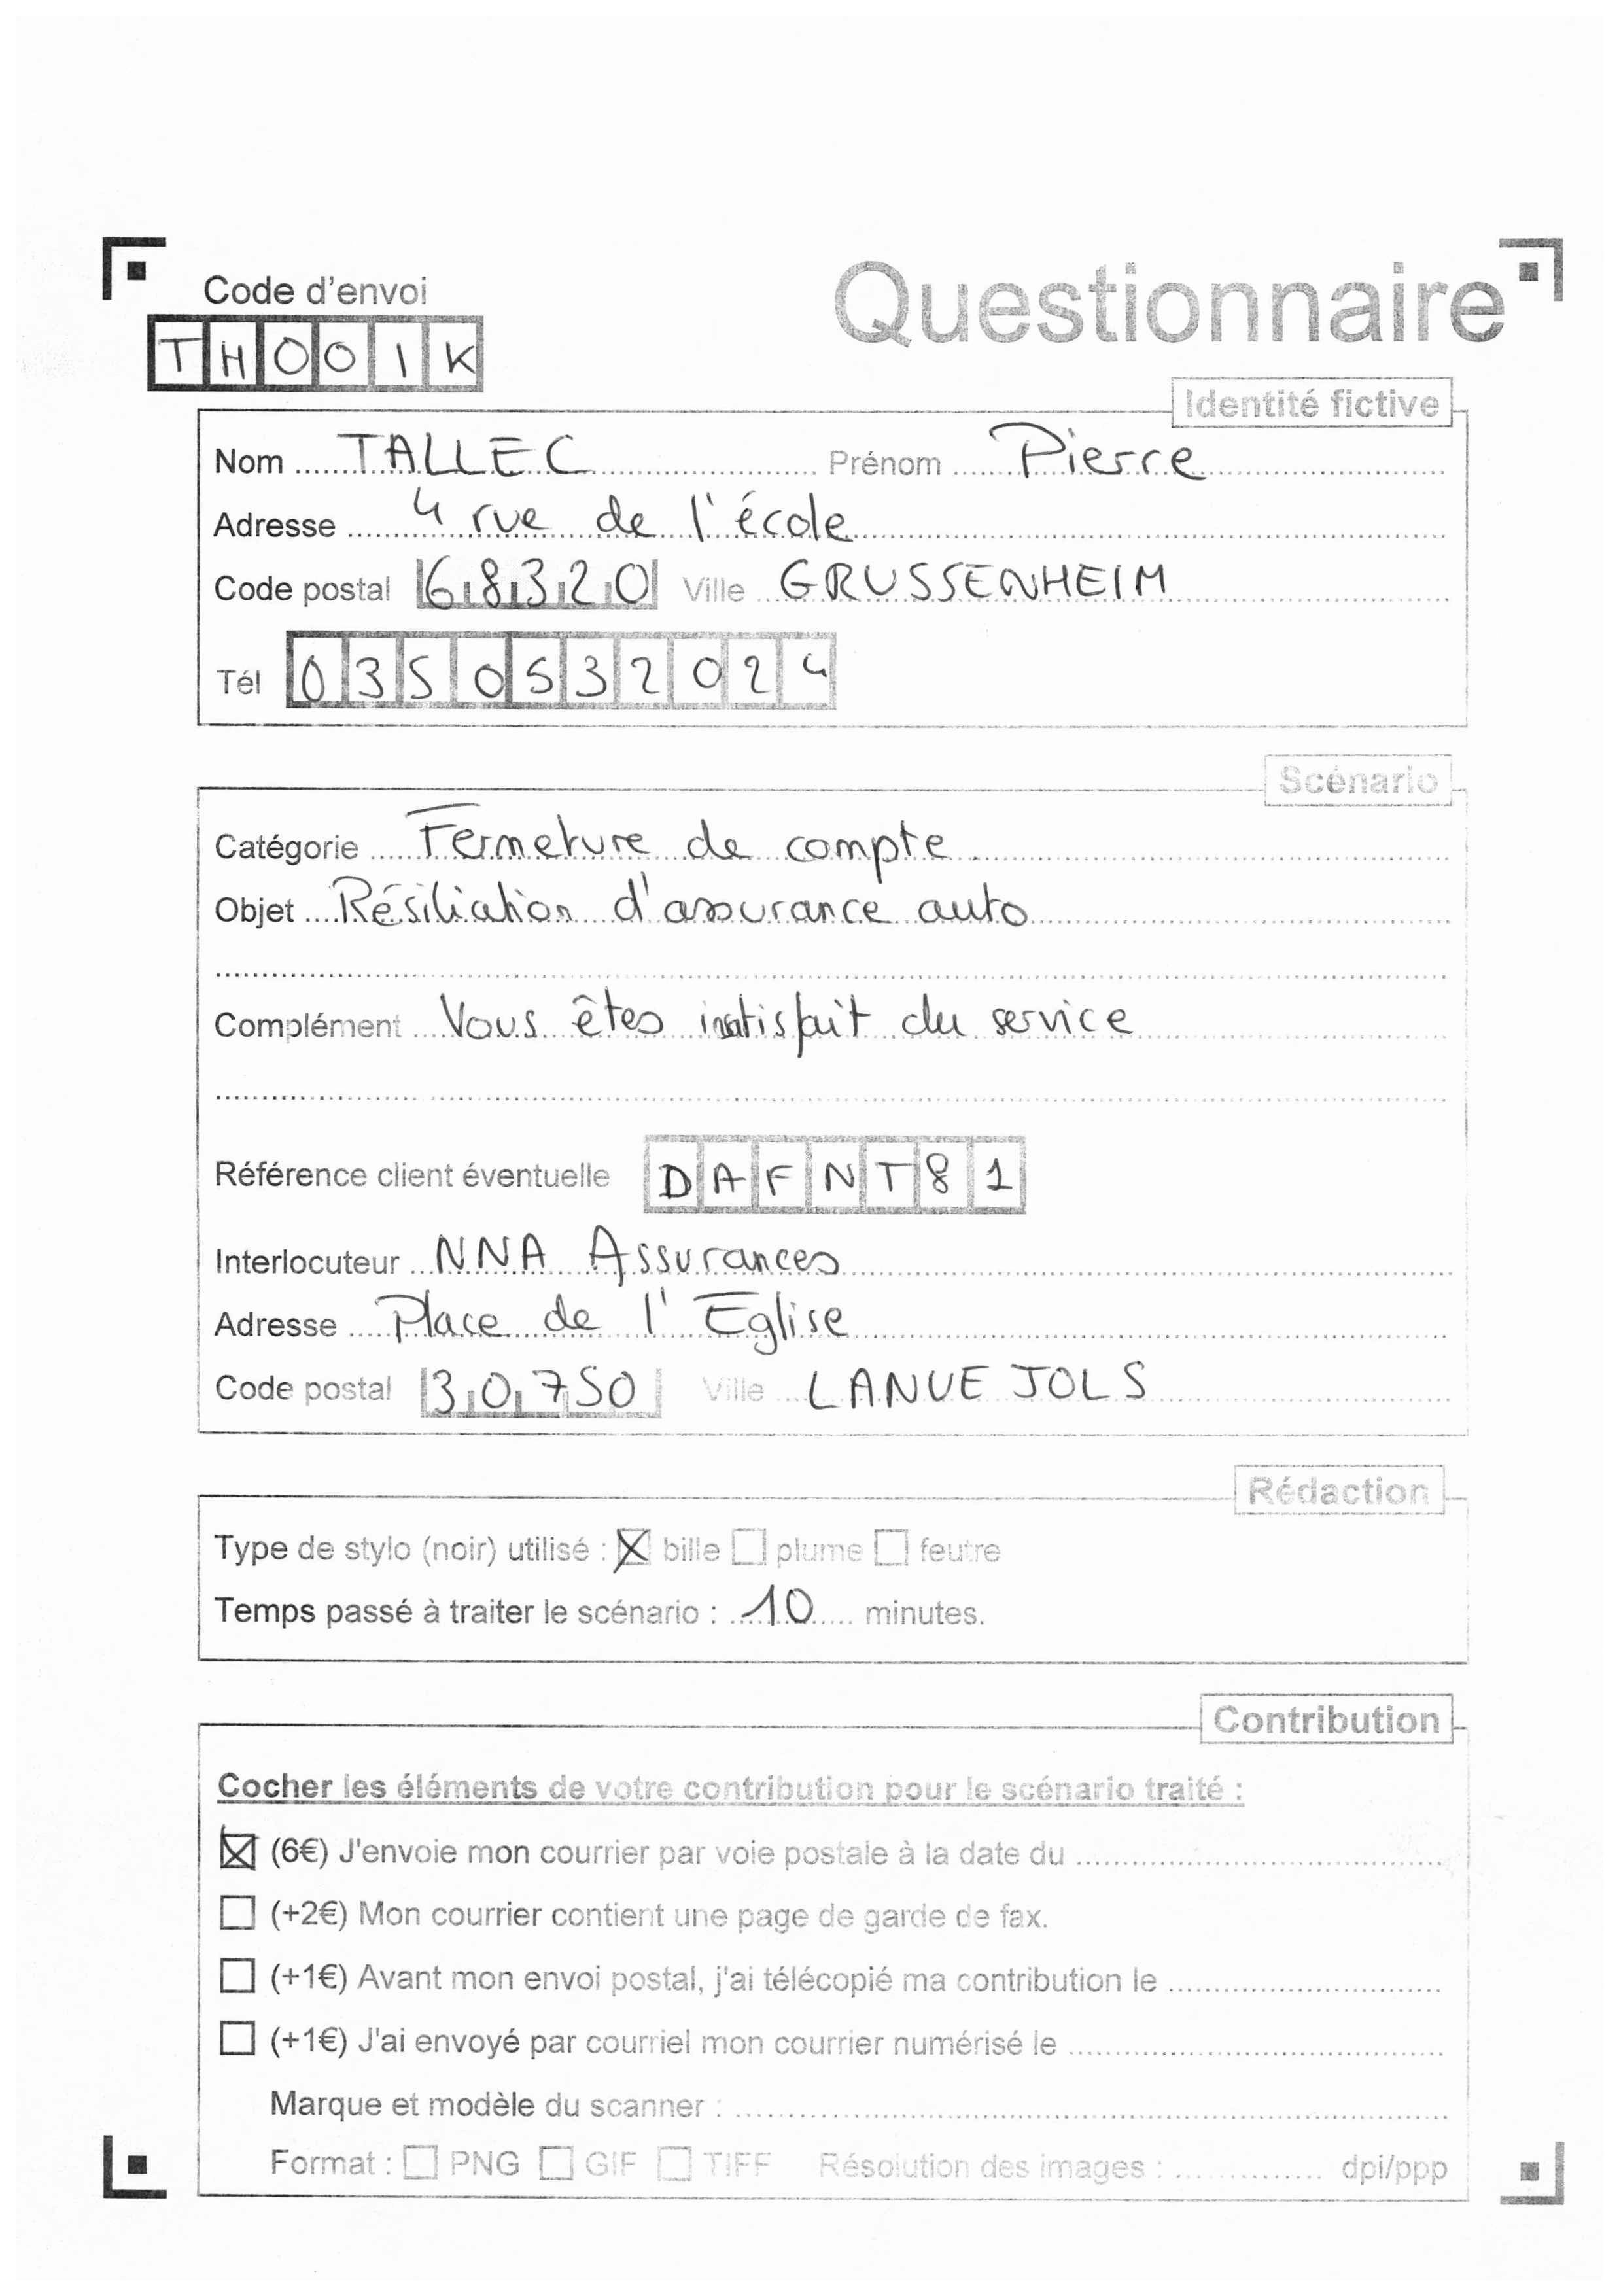 Code d'envoi
Questionnaire
THOOIK
Identité fictive
Nom TALLEC Prénom Pierre
Adresse 4 rue de l'école
Code postal 68320 Ville GRUSSENHEIM
Tél 0350532024
Scénario
Catégorie Fermeture de compte
Objet Résiliation d'assurance auto
Complément Vous êtes insatisfait du service
Référence client éventuelle DAFNT81
Interlocuteur NNA Assurances
Adresse Place de l'Eglise
Code postal 30750 Ville LANUEJOLS
Rédaction
Type de stylo (noir) utilisé : bille plume feutre
Temps passé à traiter le scénario : 10 minutes.
Contribution
Cocher les éléments de votre contribution pour le scénario traité :
(6€) J'envoie mon courrier par voie postale à la date du
(+2€) Mon courrier contient une page de garde de fax.
(+1€) Avant mon envoi postal, j'ai télécopié ma contribution le
(+1€) J'ai envoyé par courriel mon courrier numérisé le
Marque et modèle du scanner :
Format : PNG GIF TIFF Résolution des images : dpi/ppp